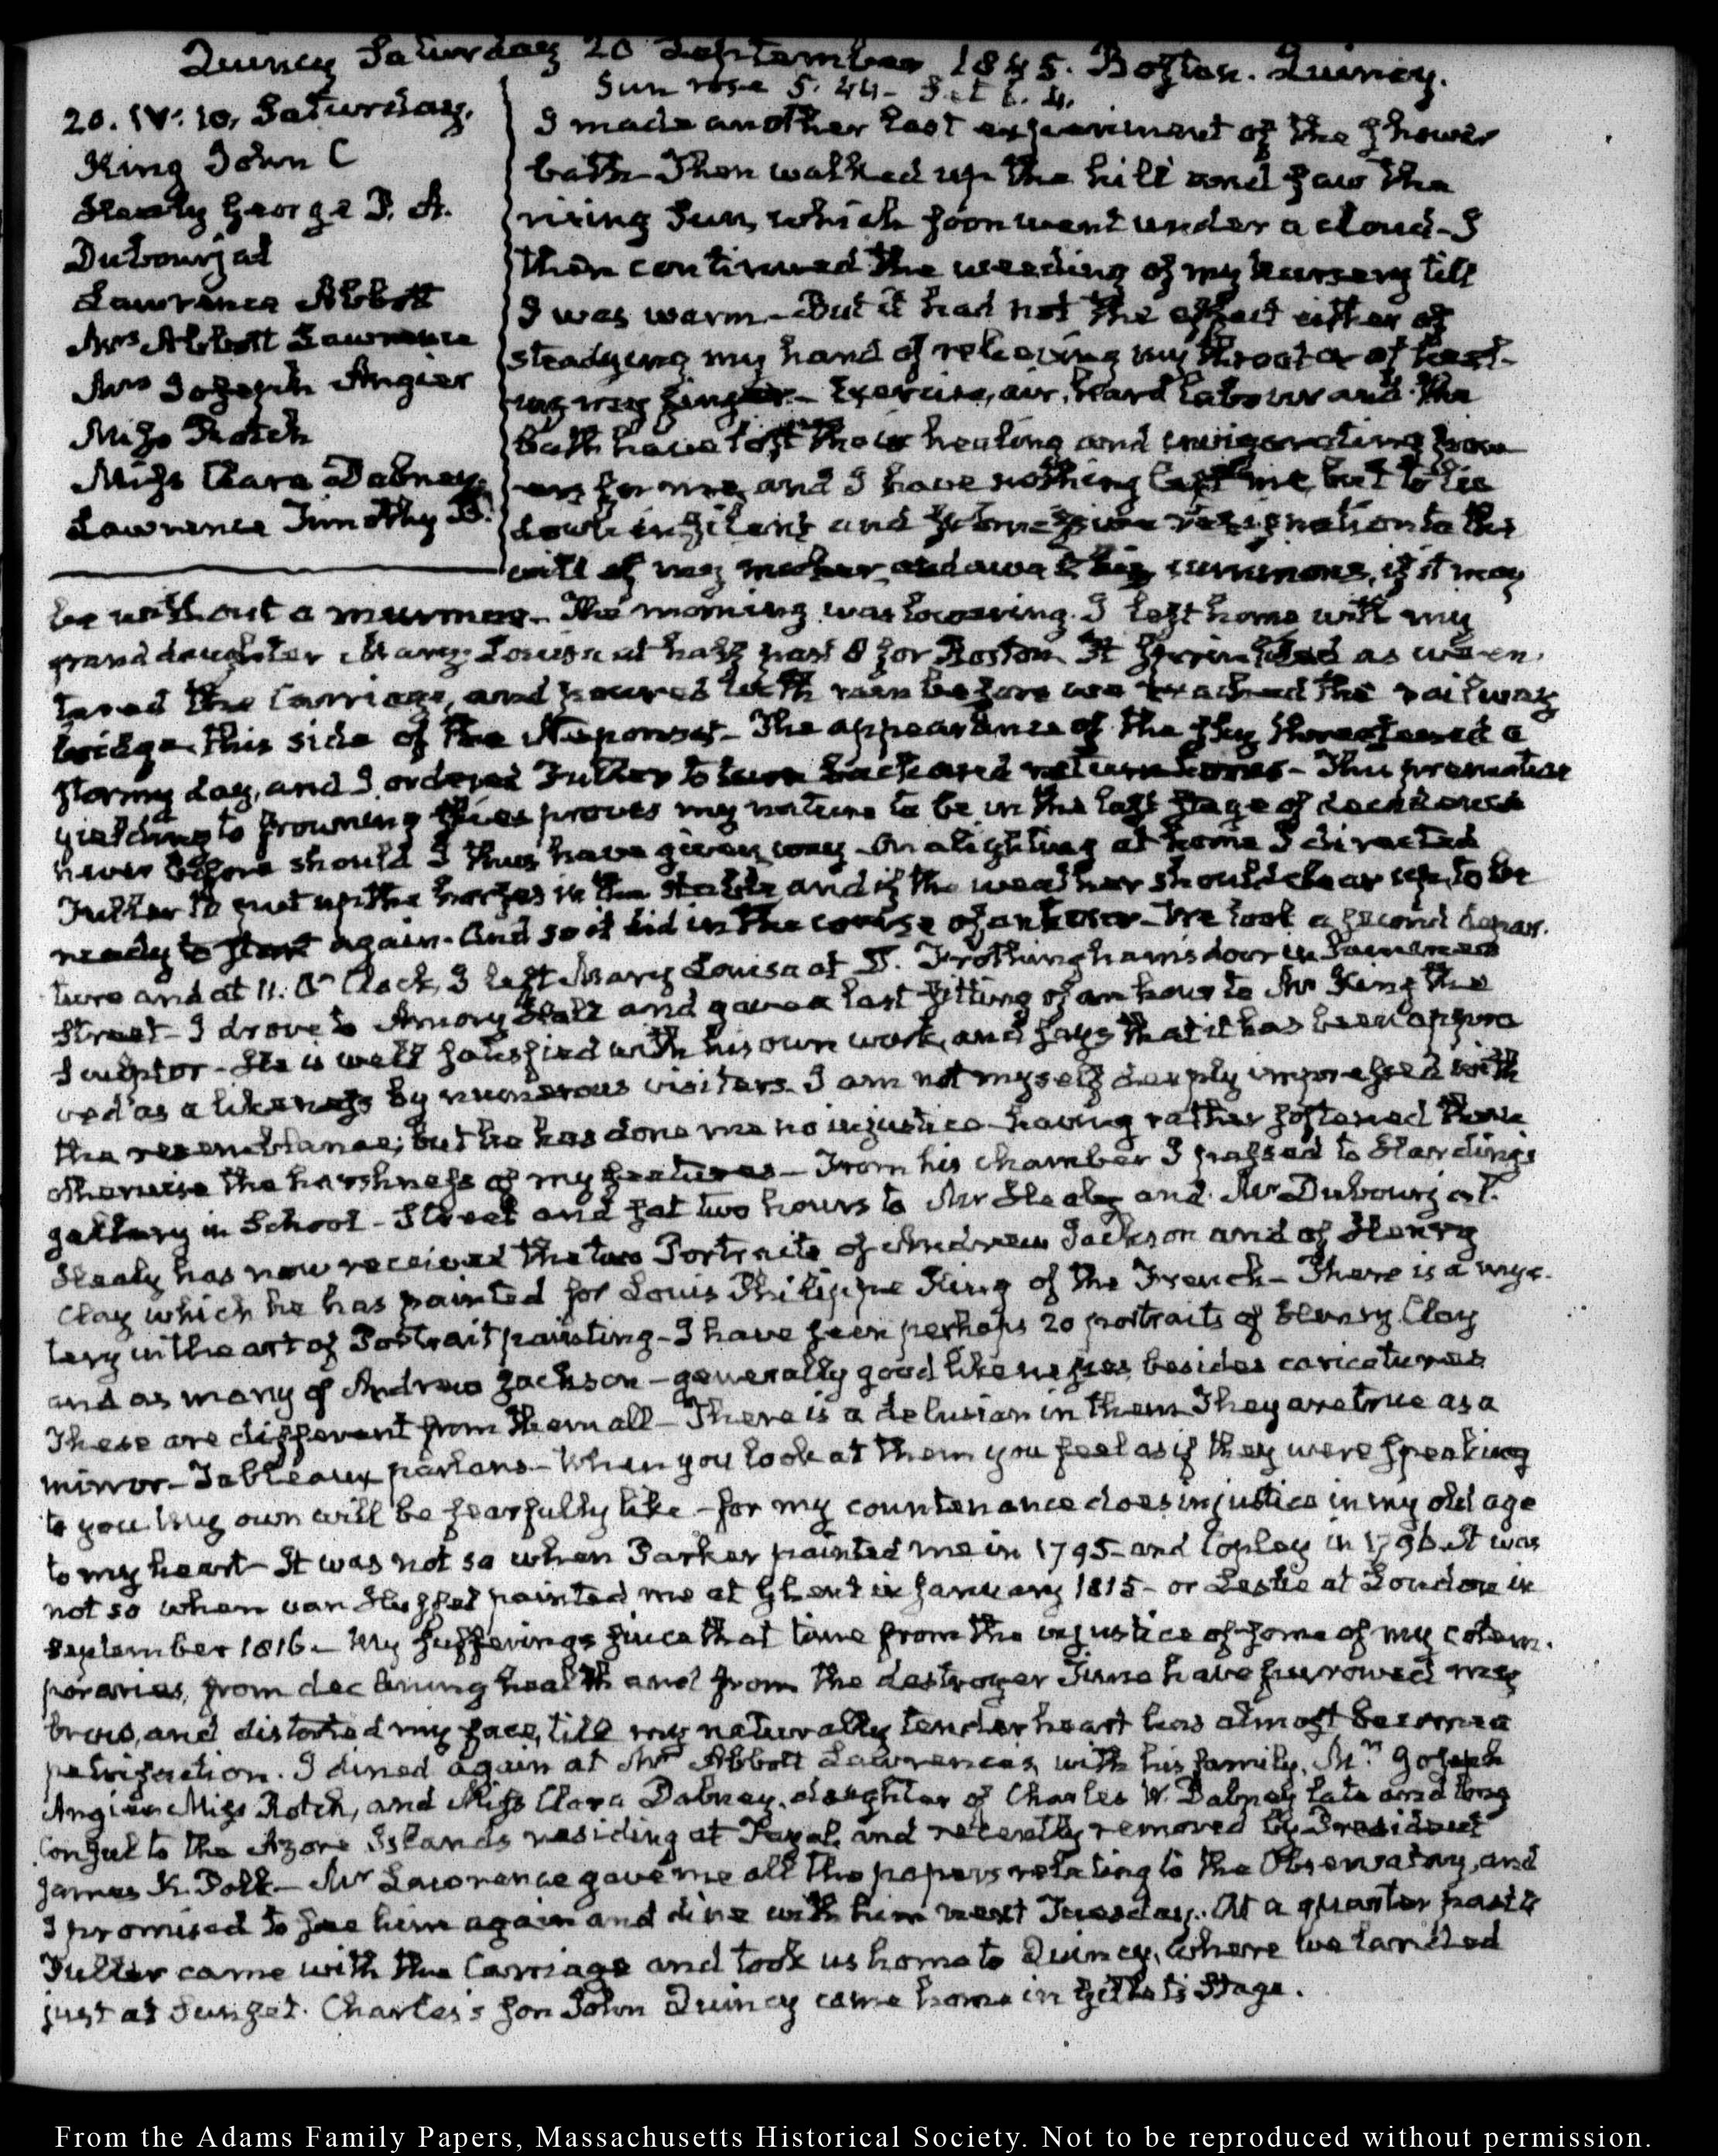 Quincy Saturday 20 September 1845. Boston. Quincy.
Sun rose 5.44 - Set 6.4.
20. IV: 10. Saturday.
King John C
Healy George P. A.
Dubourjal
Lawrence Abbott
Mrs Abbott Lawrence
Mrs Joseph Angier
Miss Rotch
Miss Clara Dabney.
Lawrence Timothy B.
I made another last experiment of the shower
bath - Then walked up the hill and saw the
rising Sun, which soon went under a cloud - I
then continued the weeding of my nursery till
I was warm - But it had not the effect either of
steadying my hand of relieving my throat or of heal-
ing my finger - Exercise, air, hard labour and the
bath have lost their healing and invigorating pow-
ers for me, and I have nothing left me, but to lie
down in silent and submissive resignation to the
will of my maker, and await his summons, if it may
be without a murmur - The morning was lowering. I left home with my
granddaughter Mary Louisa at half past 8 for Boston It sprinkled as we en-
tered the Carriage, and poured with rain before we reached the railway
bridge this side of the Neponset - The appearance of the sky threatened a
stormy day, and I ordered Fuller to turn back and return home - This premature
yielding to frowning skies proves my nature to be in the last stage of decadence
never before should I thus have given way - On alighting at home I directed
Fuller to put up the horses in the stable and if the weather should clear up, to be
ready to start again - And so it did in the course of an hour - We took a second depar-
ture and at 11. O'Clock, I left Mary Louisa at S. Frothingham's door in
Street - I drove to Amory Hall and gave a last sitting of an hour to Mr King the
Sculptor - He is well satisfied with his own work, and says that it has been appro
ved as a likeness by numerous visiters - I am not myself deeply impressed with
the resemblance; but he has done me no injustice having rather softened than
otherwise the harshness of my features - From his chamber I passed to Harding's
gallery in School-Street and sat two hours to Mr Healy and Mr Dubourjal.
Healy has now received the two Portraits of Andrew Jackson and of Henry
Clay which he has painted for Louis Philippe King of the French - There is a mys-
tery in the art of Portrait painting - I have seen perhaps 20 portraits of Henry Clay
and as many of Andrew Jackson - generally good likenesses besides caricatures
These are different from them all - There is a delusion in them They are true as a
mirror - Tableaux parlans - When you look at them you feel as if they were speaking
to you My own will be fearfully like - for my countenance does injustice in my old age
to my heart - It was not so when Parker painted me in 1795 - and Copley in 1796. It was
not so when van Huffel painted me at Ghent in January 1815 - or Leslie at London in
September 1816 - My sufferings since that time from the injustice of some of my cotem-
poraries, from declining health and from the destroyer Time have furrowed my
brow, and distorted my face, till my naturally tender heart has almost become a
petrifaction. I dined again at Mr Abbott Lawrence's, with his family, Mrs Joseph
Angier Miss Rotch, and Miss Clara Dabney, daughter of Charles W. Dabney late and long
Consul to the Azore Islands residing at Fayal, and recently removed by President
James K. Polk - Mr Lawrence gave me all the papers relating to the Observatory, and
I promised to see him again and dine with him next Tuesday. At a quarter past 4
Fuller came with the Carriage and took us home to Quincy, where we landed
just at Sunset. Charles's son John Quincy came home in Gillett's Stage.
From the Adams Family Papers, Massachusetts Historical Society. Not to be reproduced without permission.